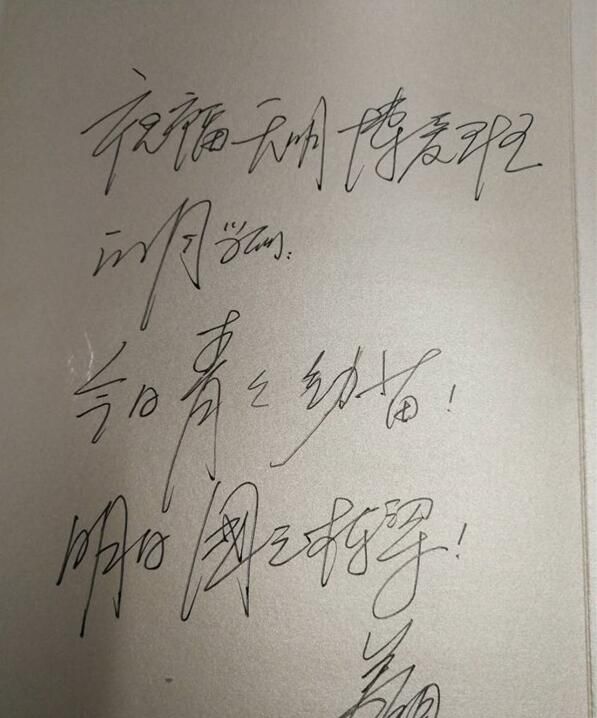 祝福天明博爱班
的同学们:
今日青之幼苗!
明日国之栋梁!